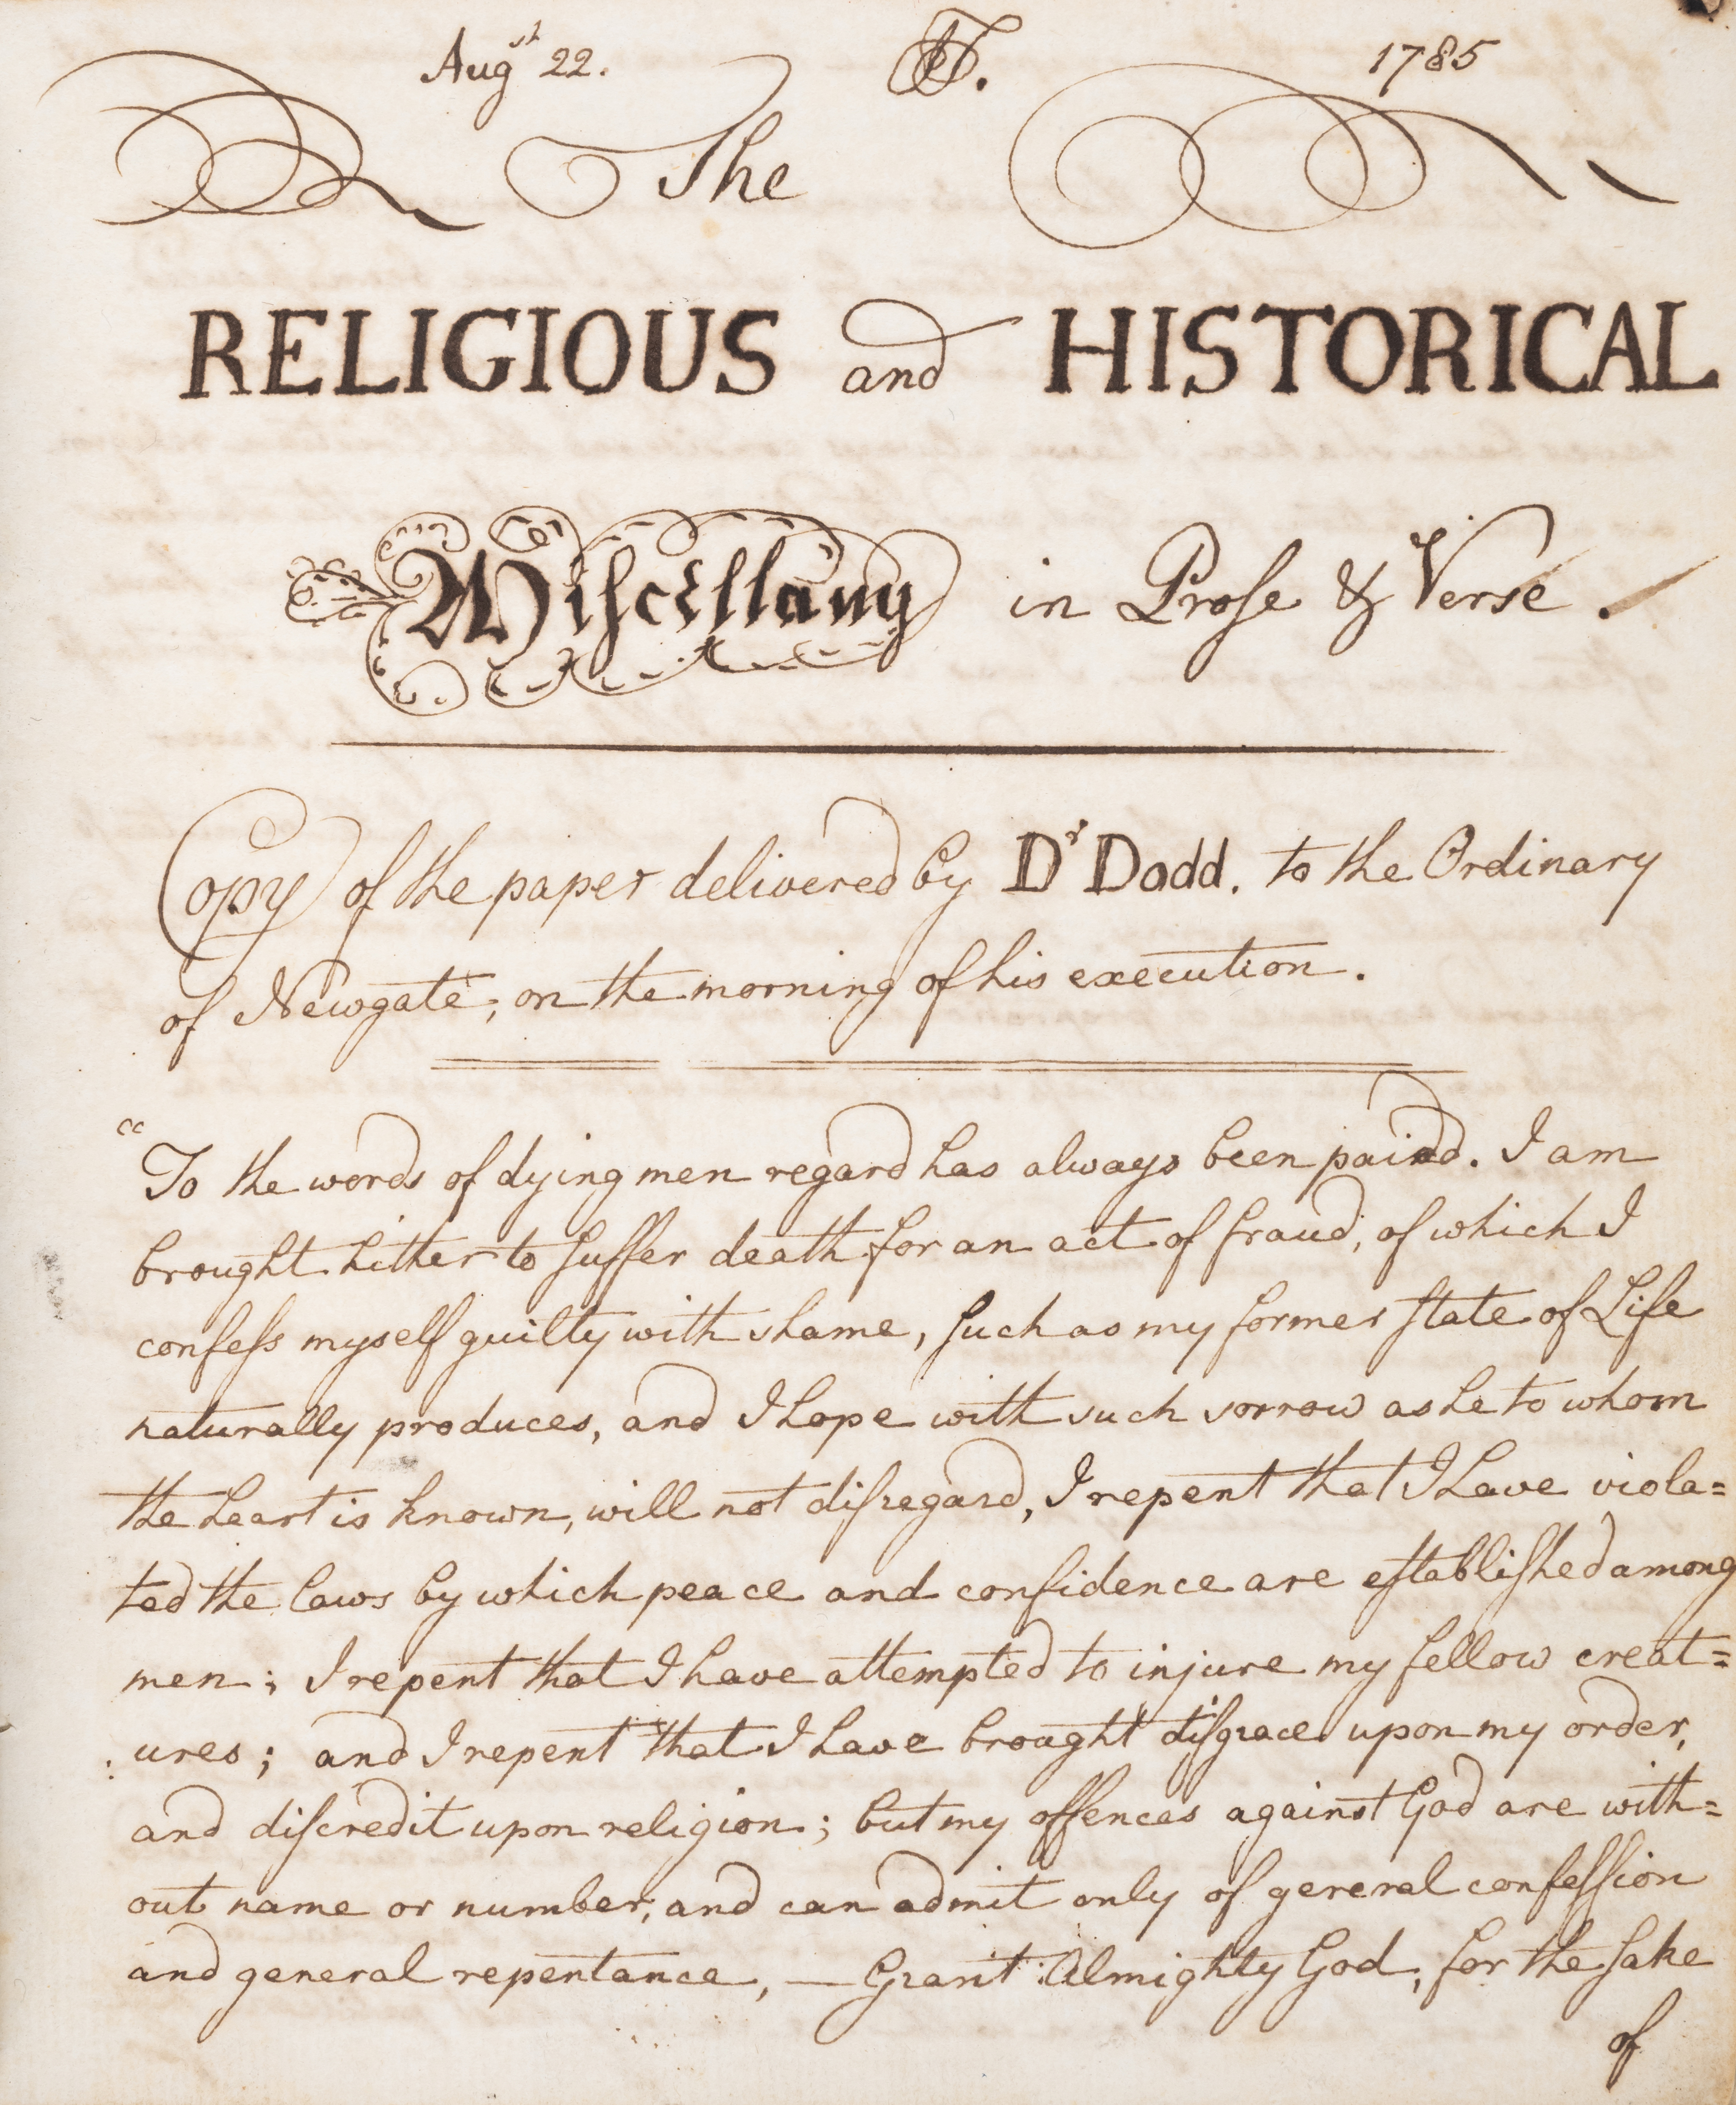 Augst 22. 1785
The
RELIGIOUS and HISTORICAL
Miſcellany in Proſe & Verse.
Copy of the paper delivered by Dr Dodd. to the Ordinary
of Newgate, on the morning of his execution.
"To the words of dying men regard has always been paid. I am
brought hither to ſuffer death for an act of fraud, of which I
confeſs myself guilty with shame, ſuch as my former ſtate of Life
naturally produces, and I hope with such sorrow as he to whom
the heart is known, will not diſregard, I repent that I have viola=
ted the laws by which peace and confidence are eſtabliſhed among
men; I repent that I have attempted to injure my fellow creat=
:ures; and I repent that I have brought diſgrace upon my order,
and diſcredit upon religion; but my offences against God are with=
out name or number, and can admit only of general confeſſion
and general repentance, — Grant Almighty God, for the ſake
of